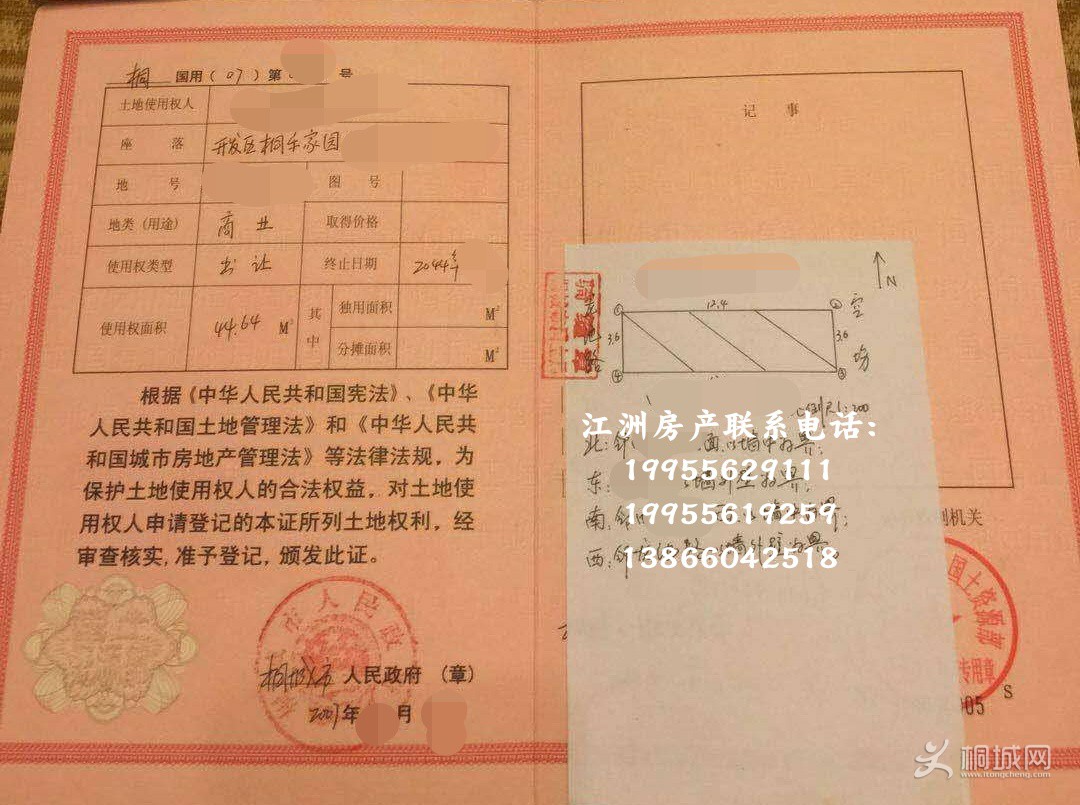 桐 国用(07)第 号
土地使用权人
座 落 开发区桐乐家园
地 号 图 号
地类(用途) 商业 取得价格
使用权类型 出让 终止日期 2044年
使用权面积 44.64 M² 其中 独用面积 M²
分摊面积 M²
根据《中华人民共和国宪法》、《中华
人民共和国土地管理法》和《中华人民共
和国城市房地产管理法》等法律法规，为
保护土地使用权人的合法权益，对土地使
用权人申请登记的本证所列土地权利，经
审查核实，准予登记，颁发此证。
市人民政
桐城市 人民政府 (章)
2007年 月
记事
N
① 12.4 ②
3.6 3.6
④ ③
空场
路
1:200
北:邻 墙中为界;
东: 墙外壁为界;
南:邻 界;
西:邻 墙外壁为界
江洲房产联系电话:
19955629111
19955619259
13866042518
制机关
国土资源部
专用章
005 S
桐城网
www.itongcheng.com